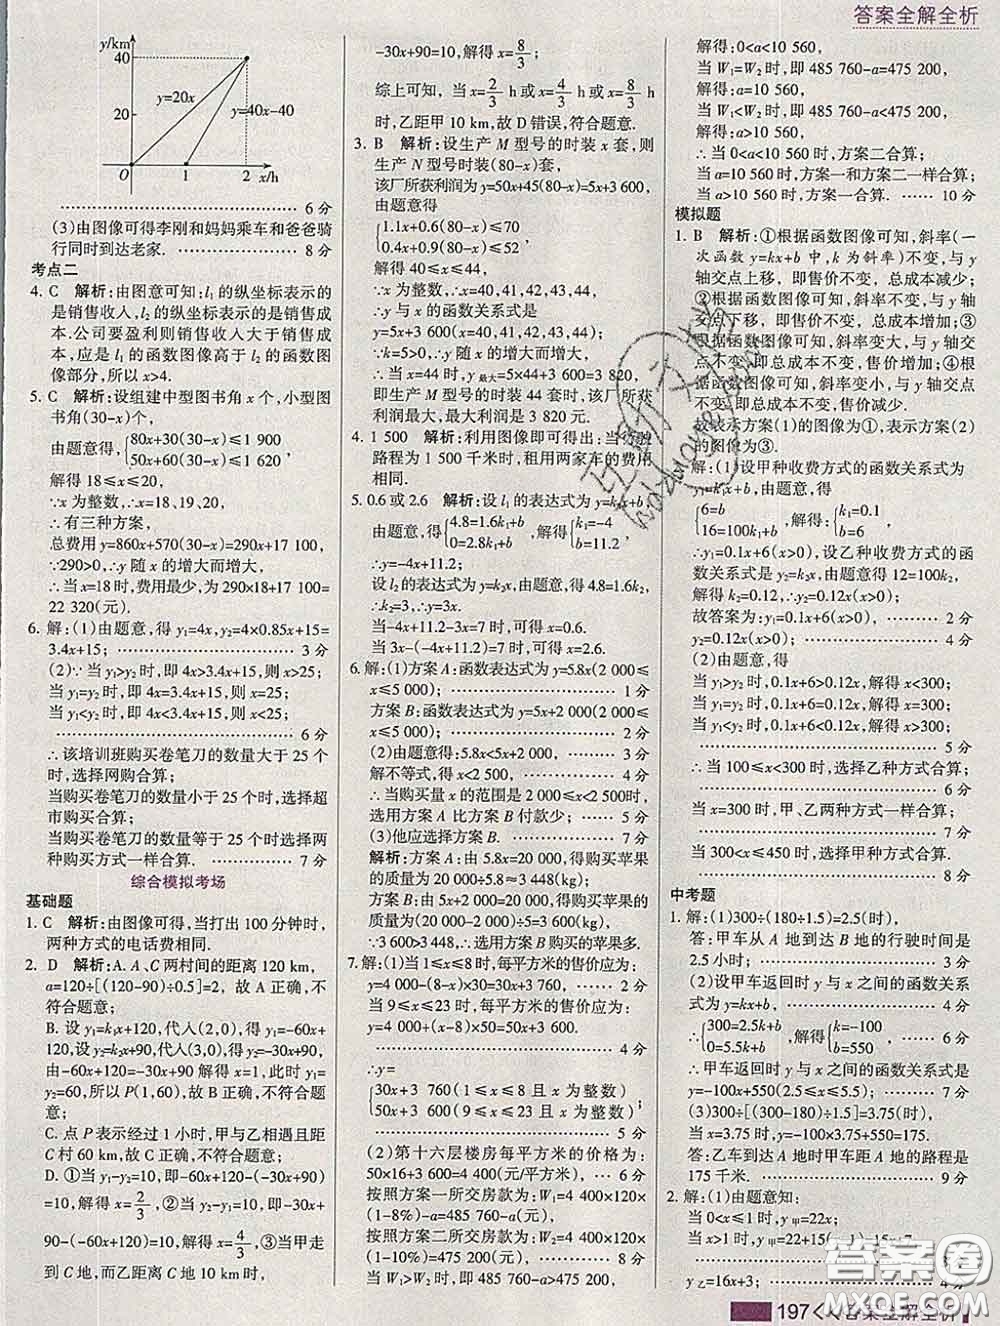 答案全解全析
y/km
40
20
y=20x
y=40x-40
O 1 2 x/h
6 分
(3)由图像可得李刚和妈妈乘车和爸爸骑
行同时到达老家. 8 分
考点二
4. C 解析:由图意可知:l₁的纵坐标表示的
是销售收入,l₂的纵坐标表示的是销售成
本.公司要盈利则销售收入大于销售成
本,应是 l₁ 的函数图像高于 l₂ 的函数图
像部分,所以 x>4.
5. C 解析:设组建中型图书角 x 个,小型图
书角(30-x)个,
由题意得,{80x+30(30-x)≤1 900
50x+60(30-x)≤1 620,
解得 18≤x≤20,
∵x 为整数,∴x=18、19、20,
∴有三种方案,
总费用 y=860x+570(30-x)=290x+17 100,
∵290>0,∴y 随 x 的增大而增大,
∴当 x=18 时,费用最少,为 290×18+17 100=
22 320(元).
6. 解:(1)由题意,得 y₁=4x,y₂=4×0.85x+15=
3.4x+15; 3 分
(2)∵当 y₁>y₂ 时,即 4x>3.4x+15,则 x>25;
当 y₁=y₂ 时,即 4x=3.4x+15,则 x=25;
当 y₁<y₂ 时,即 4x<3.4x+15,则 x<25;
6 分
∴该培训班购买卷笔刀的数量大于 25 个
时,选择网购合算;
当购买卷笔刀的数量小于 25 个时,选择超
市购买合算;
当购买卷笔刀的数量等于 25 个时选择两
种购买方式一样合算. 7 分
综合模拟考场
基础题
1. C 解析:由图像可得,当打出 100 分钟时,
两种方式的电话费相同.
2. D 解析:A. A、C 两村间的距离 120 km,
a=120÷[(120-90)÷0.5]=2, 故 A 正确,不
符合题意;
B. 设 y₁=k₁x+120,代入(2,0),得 y₁=-60x+
120,设 y₂=k₂x+90,代入(3,0),得 y₂=-30x+90,
由-60x+120=-30x+90 解得 x=1,此时 y₁=
y₂=60,所以 P(1,60),故 B 正确,不符合题
意;
C. 点 P 表示经过 1 小时,甲与乙相遇且距
C 村 60 km,故 C 正确,不符合题意;
D. ①当 y₁-y₂=10 时,即-60x+120-(-30x+90)
=10, 解得 x=2/3,②当 y₂-y₁=10 时,即-30x+
90-(-60x+120)=10,解得 x=4/3,③当甲走
到 C 地,而乙距离 C 地 10 km 时,
-30x+90=10,解得 x=8/3;
综上可知,当 x=2/3 h或 x=4/3 h或 x=8/3 h
时,乙距甲 10 km,故 D 错误,符合题意.
3. B 解析:设生产 M 型号的时装 x 套,则
生产 N 型号时装(80-x)套,
该厂所获利润为 y=50x+45(80-x)=5x+3 600,
由题意得
{1.1x+0.6(80-x)≤70
0.4x+0.9(80-x)≤52,
解得 40≤x≤44,
∵x 为整数,∴x=40,41,42,43,44,
∴y 与 x 的函数关系式是
y=5x+3 600(x=40,41,42,43,44),
∵k=5>0,∴y 随 x 的增大而增大,
∴当 x=44 时,y最大=5×44+3 600=3 820,
即生产 M 型号的时装 44 套时,该厂所获
利润最大,最大利润是 3 820 元.
4. 1 500 解析:利用图像即可得出:当行驶
路程为 1 500 千米时,租用两家车的费用
相同.
5. 0.6 或 2.6 解析:设 l₁ 的表达式为 y=k₁x+b,
由题意,得{4.8=1.6k₁+b
0=2.8k₁+b,解得{k₁=-4
b=11.2,
∴y=-4x+11.2;
设 l₂ 的表达式为 y=k₂x,由题意,得 4.8=1.6k₂,
∴k₂=3,∴y=3x.
当-4x+11.2-3x=7 时,可得 x=0.6.
当 3x-(-4x+11.2)=7 时,可得 x=2.6.
6. 解:(1)方案 A:函数表达式为 y=5.8x(2 000≤
x≤5 000); 1 分
方案 B:函数表达式为 y=5x+2 000(2 000≤
x≤5 000); 2 分
(2)由题意得:5.8x<5x+2 000, 3 分
解不等式,得 x<2 500, 4 分
∴当购买量 x 的范围是 2 000≤x<2 500时,
选用方案 A 比方案 B 付款少; 5 分
(3)他应选择方案 B. 7 分
解析:方案 A:由 5.8x=20 000,得购买苹果
的质量为 20 000÷5.8≈3 448(kg),
方案 B:由 5x+2 000=20 000,得购买苹果的
质量为(20 000-2 000)÷5=3 600(kg),
∵3 600>3 448,∴选用方案 B 购买的苹果多.
7. 解:(1)当 1≤x≤8 时,每平方米的售价应为:
y=4 000-(8-x)×30=30x+3 760(元/平方米),
当 9≤x≤23 时,每平方米的售价应为:
y=4 000+(x-8)×50=50x+3 600(元/平方米).
4 分
∴y=
{30x+3 760(1≤x≤8 且 x 为整数)
50x+3 600(9≤x≤23 且 x 为整数)
5 分
(2)第十六层楼房每平方米的价格为:
50×16+3 600=4 400(元/平方米), 6 分
按照方案一所交房款为:W₁=4 400×120×
(1-8%)-a=485 760-a(元), 7 分
按照方案二所交房款为:W₂=4 400×120×
(1-10%)=475 200(元), 8 分
当 W₁>W₂ 时,即 485 760-a>475 200,
解得:0<a<10 560,
当 W₁=W₂ 时,即 485 760-a=475 200,
解得:a=10 560,
当 W₁<W₂ 时,即 485 760-a<475 200,
解得:a>10 560,
∴当 0<a<10 560 时,方案二合算;
当 a=10 560 时,方案一和方案二一样合算;
当 a>10 560 时,方案一合算. 10 分
模拟题
1. B 解析:①根据函数图像可知,斜率(一
次函数 y=kx+b 中,k 为斜率)不变,与 y
轴交点上移,即售价不变,总成本减少;
②根据函数图像可知,斜率不变,与 y 轴
交点下移,即售价不变,总成本增加;③
根据函数图像可知,斜率变大,与 y 轴交
点不变,即总成本不变,售价增加;④根
据函数图像可知,斜率变小,与 y 轴交点
不变,即总成本不变,售价减少.
故表示方案(1)的图像为①,表示方案(2)
的图像为③.
解:(1)设甲种收费方式的函数关系式为
y₁=k₁x+b,{6=b
16=100k₁+b,解得:{k₁=0.1
b=6,
∴y₁=0.1x+6(x>0),设乙种收费方式的函
数关系式是 y₂=k₂x,由题意得 12=100k₂,
解得 k₂=0.12,∴y₂=0.12x(x>0);
故答案为:y₁=0.1x+6(x>0), 2 分
y₂=0.12x(x>0); 4 分
(2)由题意,得
当 y₁>y₂ 时,0.1x+6>0.12x,解得 x<300;
当 y₁=y₂ 时,0.1x+6=0.12x,解得 x=300;
当 y₁<y₂ 时,0.1x+6<0.12x,解得 x>300;
5 分
∴当 100≤x<300 时,选择乙种方式合算;
6 分
当 x=300 时,甲、乙两种方式一样合算;
7 分
当 300<x≤450 时,选择甲种方式合算.
8 分
中考题
1. 解:(1)300÷(180÷1.5)=2.5(时),
答:甲车从 A 地到达 B 地的行驶时间是
2.5 小时. 3 分
(2)设甲车返回时 y 与 x 之间的函数关系
式为 y=kx+b, 4 分
∴{300=2.5k+b
0=5.5k+b,解得{k=-100
b=550, 6 分
∴甲车返回时 y 与 x 之间的函数关系式是
y=-100x+550(2.5≤x≤5.5); 7 分
(3)300÷[(300-180)÷1.5]=3.75(时),
当 x=3.75 时,y=-100×3.75+550=175.
答:乙车到达 A 地时甲车距 A 地的路程是
175 千米. 9 分
2. 解:(1)由题意知:
当 0<x≤1 时,y甲=22x;
当 x>1 时,y甲=22+15(x-1)=15x+7;
3 分
y乙=16x+3; 4 分
197 答案全解全析